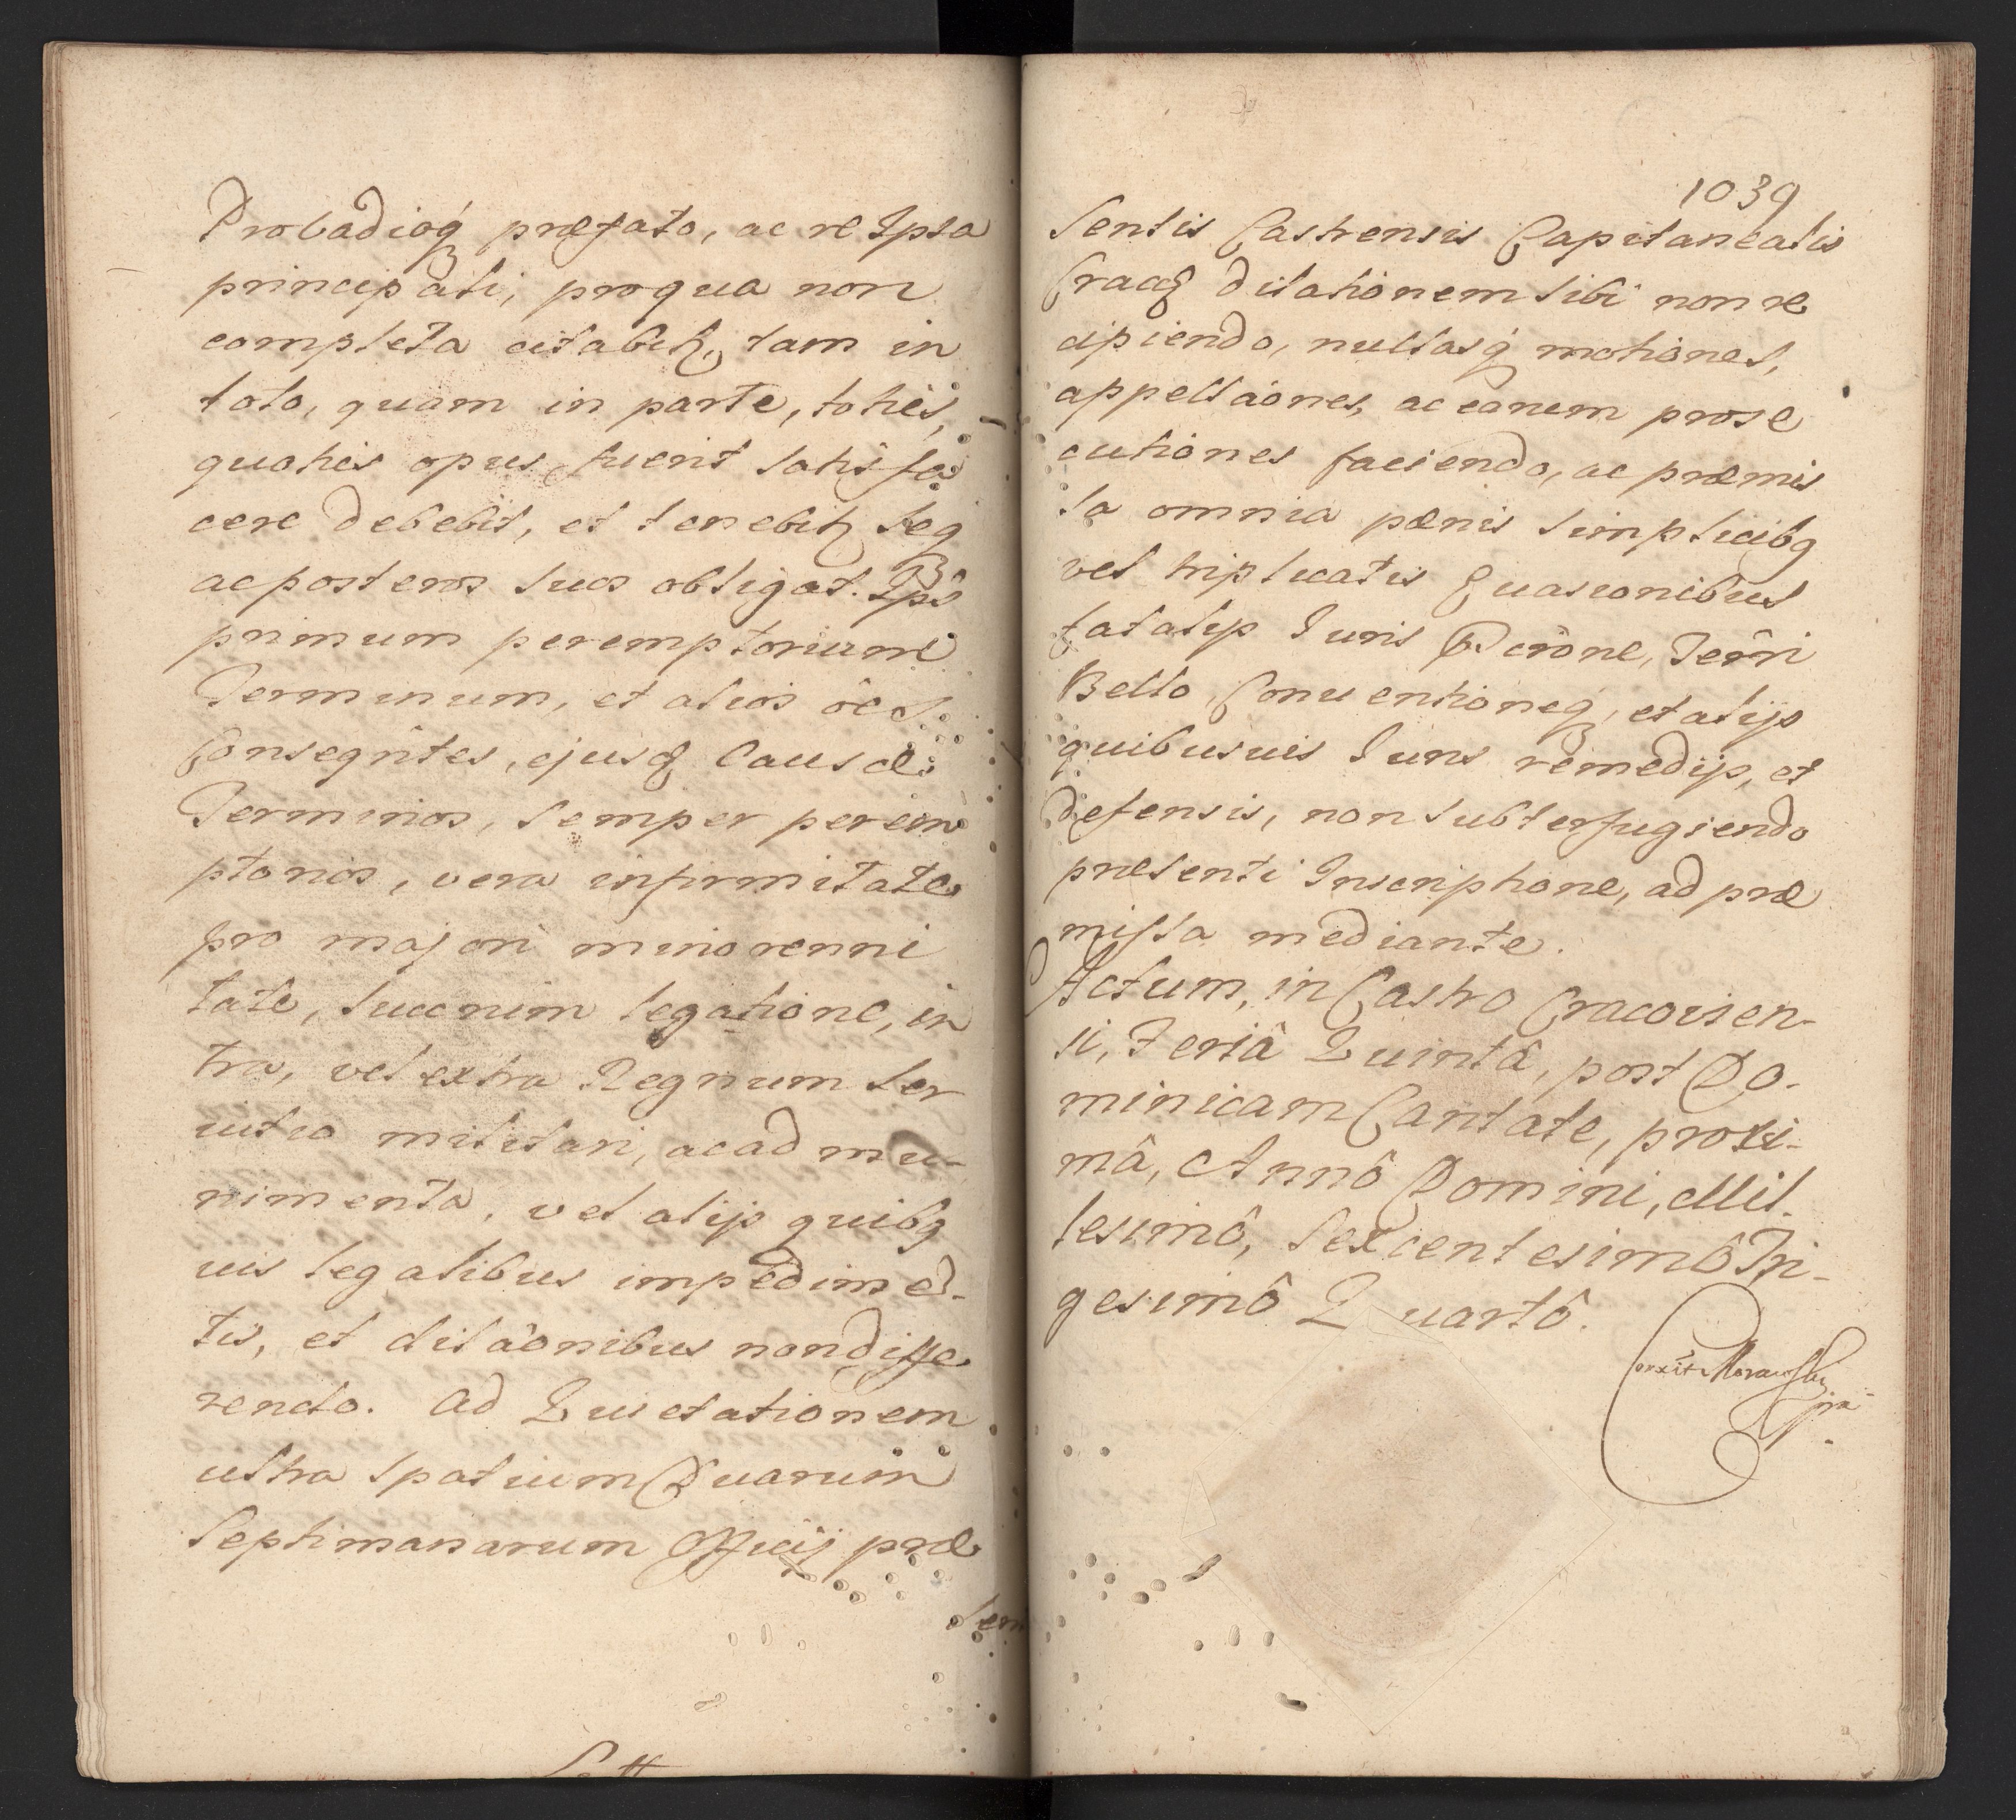 Probadioq́ præfato, ac re Ipsa
principali, pro qua non
completa citabitꝛ, tam in
toto, quam in parte, toties,
quoties opus fuerit satisfa
cere debebit, et tenebitꝛ seq
ac posteros suos obligat. Ips
primum peremptorium
Terminum, et alios oẽs
Conseqntes, ejusq Causæ
Terminos, semper perem
ptorios, vera infirmitate
pro majori minorenni
tate, succnim legatione, in
tra, vel extra Regnum ser
uitio militari, ac ad mu-
nimenta, vel alijs quibq
uis legalibus impedimē-
tis, et dilaônibus non diffe
rendo. Ad Quietationem
ultra spatium Duarum
Septimanarum Officij præ
sen
1039
sentis Castrensis Capitanealis
Cracq dilationem sibi non re
cipiendo, nullasq́ motiones,
appellaônes, ac earum prose
cutiones faciendo, ac præmis
sa omnia pænis simplicibq
vel triplicatis Euasionibus
fatalip Iuris Dcrône, Terri
Bello, Conuentioneq, et alijs
quibusuis Iuris remedijs, et
defensis, non subterfugiendo
præsenti Inscriptione, ad præ
missa mediante.
Actum, in Castro Cracovien-
si, Feriâ Quintâ, post Do-
minicam Cantate, proxi-
mâ, Annô Domini, Mil-
lesimô, Sexcentesimô Tri-
gesimô Quartô.
Corxit Morawski
mp